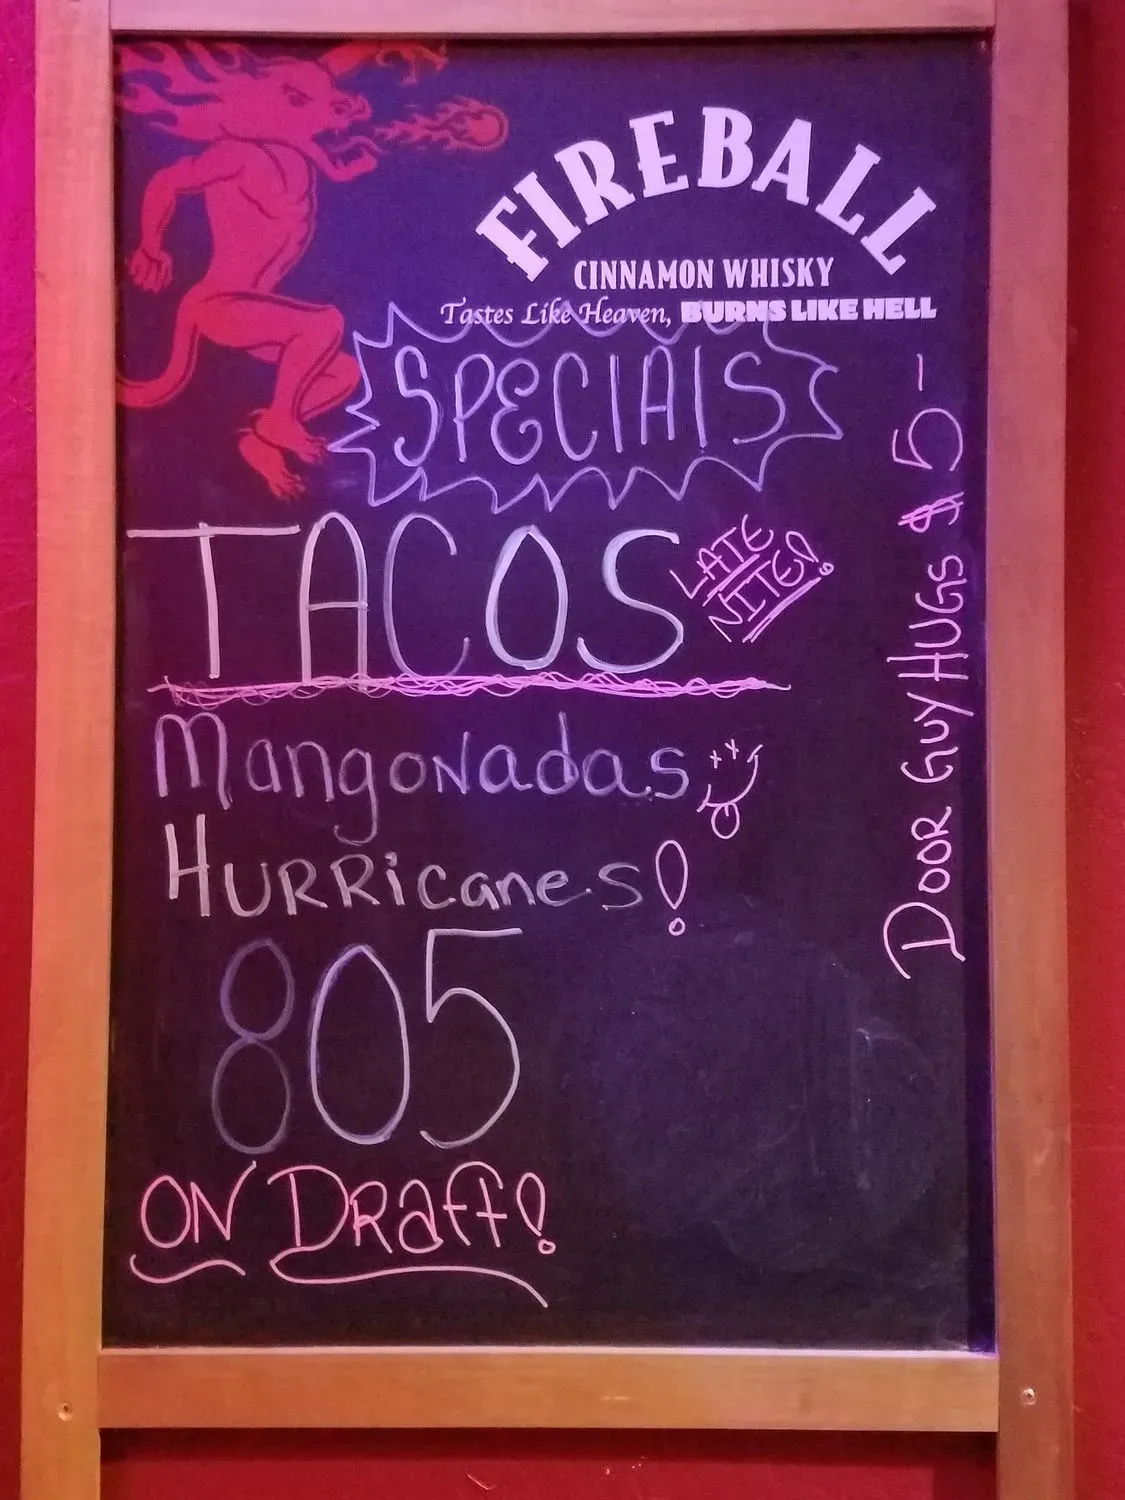 FIREBALL
CINNAMON WHISKY
Tastes Like Heaven, BURNS LIKE HELL
SPECIAlS
TACOS
LATE
NITE!
MangoNadas
HURRicanes!
805
ON DRaft!
DOOR GUY HUGS $5-